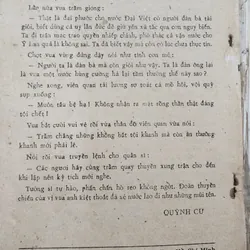 Lần nữa vua trầm giọng:
— Thật là đại phước cho nước Đại Việt có người đàn bà tài
giỏi, biết dùng cả uy lẫn đức để giữ yên và tác qua cơn nguy biến.
Ta đi trận mạc truyền nhiếp chánh, phó thác cả việc nước cho
Ỷ Lan quả là không sai. Ta đã kiệt vậy mà còn sợ lúc chưa thực tin.
Chợt vua vùng đứng dậy nói như tỉnh cơn mơ:
— Người ta là đàn bà mà còn giỏi như vậy. Ta là đàn ông lại
là vua một nước hùng cường há lại tầm thường thế này sao?
Nghe xong, viên quan tải lương sợ toát cả mồ hôi, vội quỳ
xuống:
— Muôn tâu bệ hạ! Không nhẽ ra một rồng thân thật đáng
tội chết!
Vua bật cười vui vẻ rồi vừa thân đỡ viên quan vừa nói:
— Trẫm chẳng những không bắt tội khanh mà còn ân thưởng
khanh mới phải lẽ.
Nói rồi vua truyền lệnh cho quân sĩ:
— Các ngươi hãy cùng trẫm quay thuyền xung trận cho đến
khi lập nên kỳ tích mới nghe.
Tướng sĩ tự hào, phấn chấn hò reo không ngớt. Đoàn thuyền
chiến của vua anh kiệt thoát đã xé nước lao đi như những mũi tên.
QUỲNH CƯ